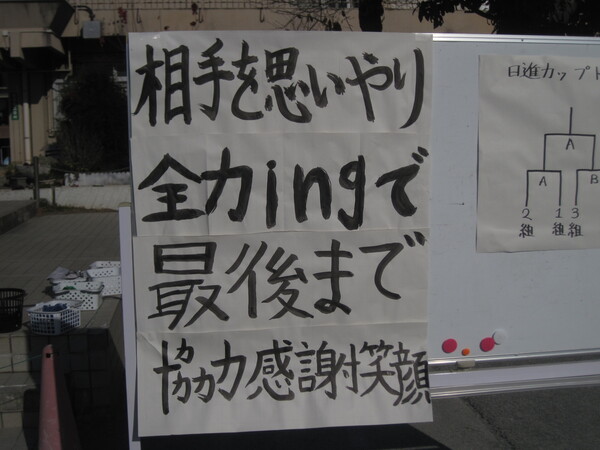 相手を思いやり
全力ingで
最後まで
協力感謝笑顔
日進カップト
A
A B
2 1 3
組 組 組